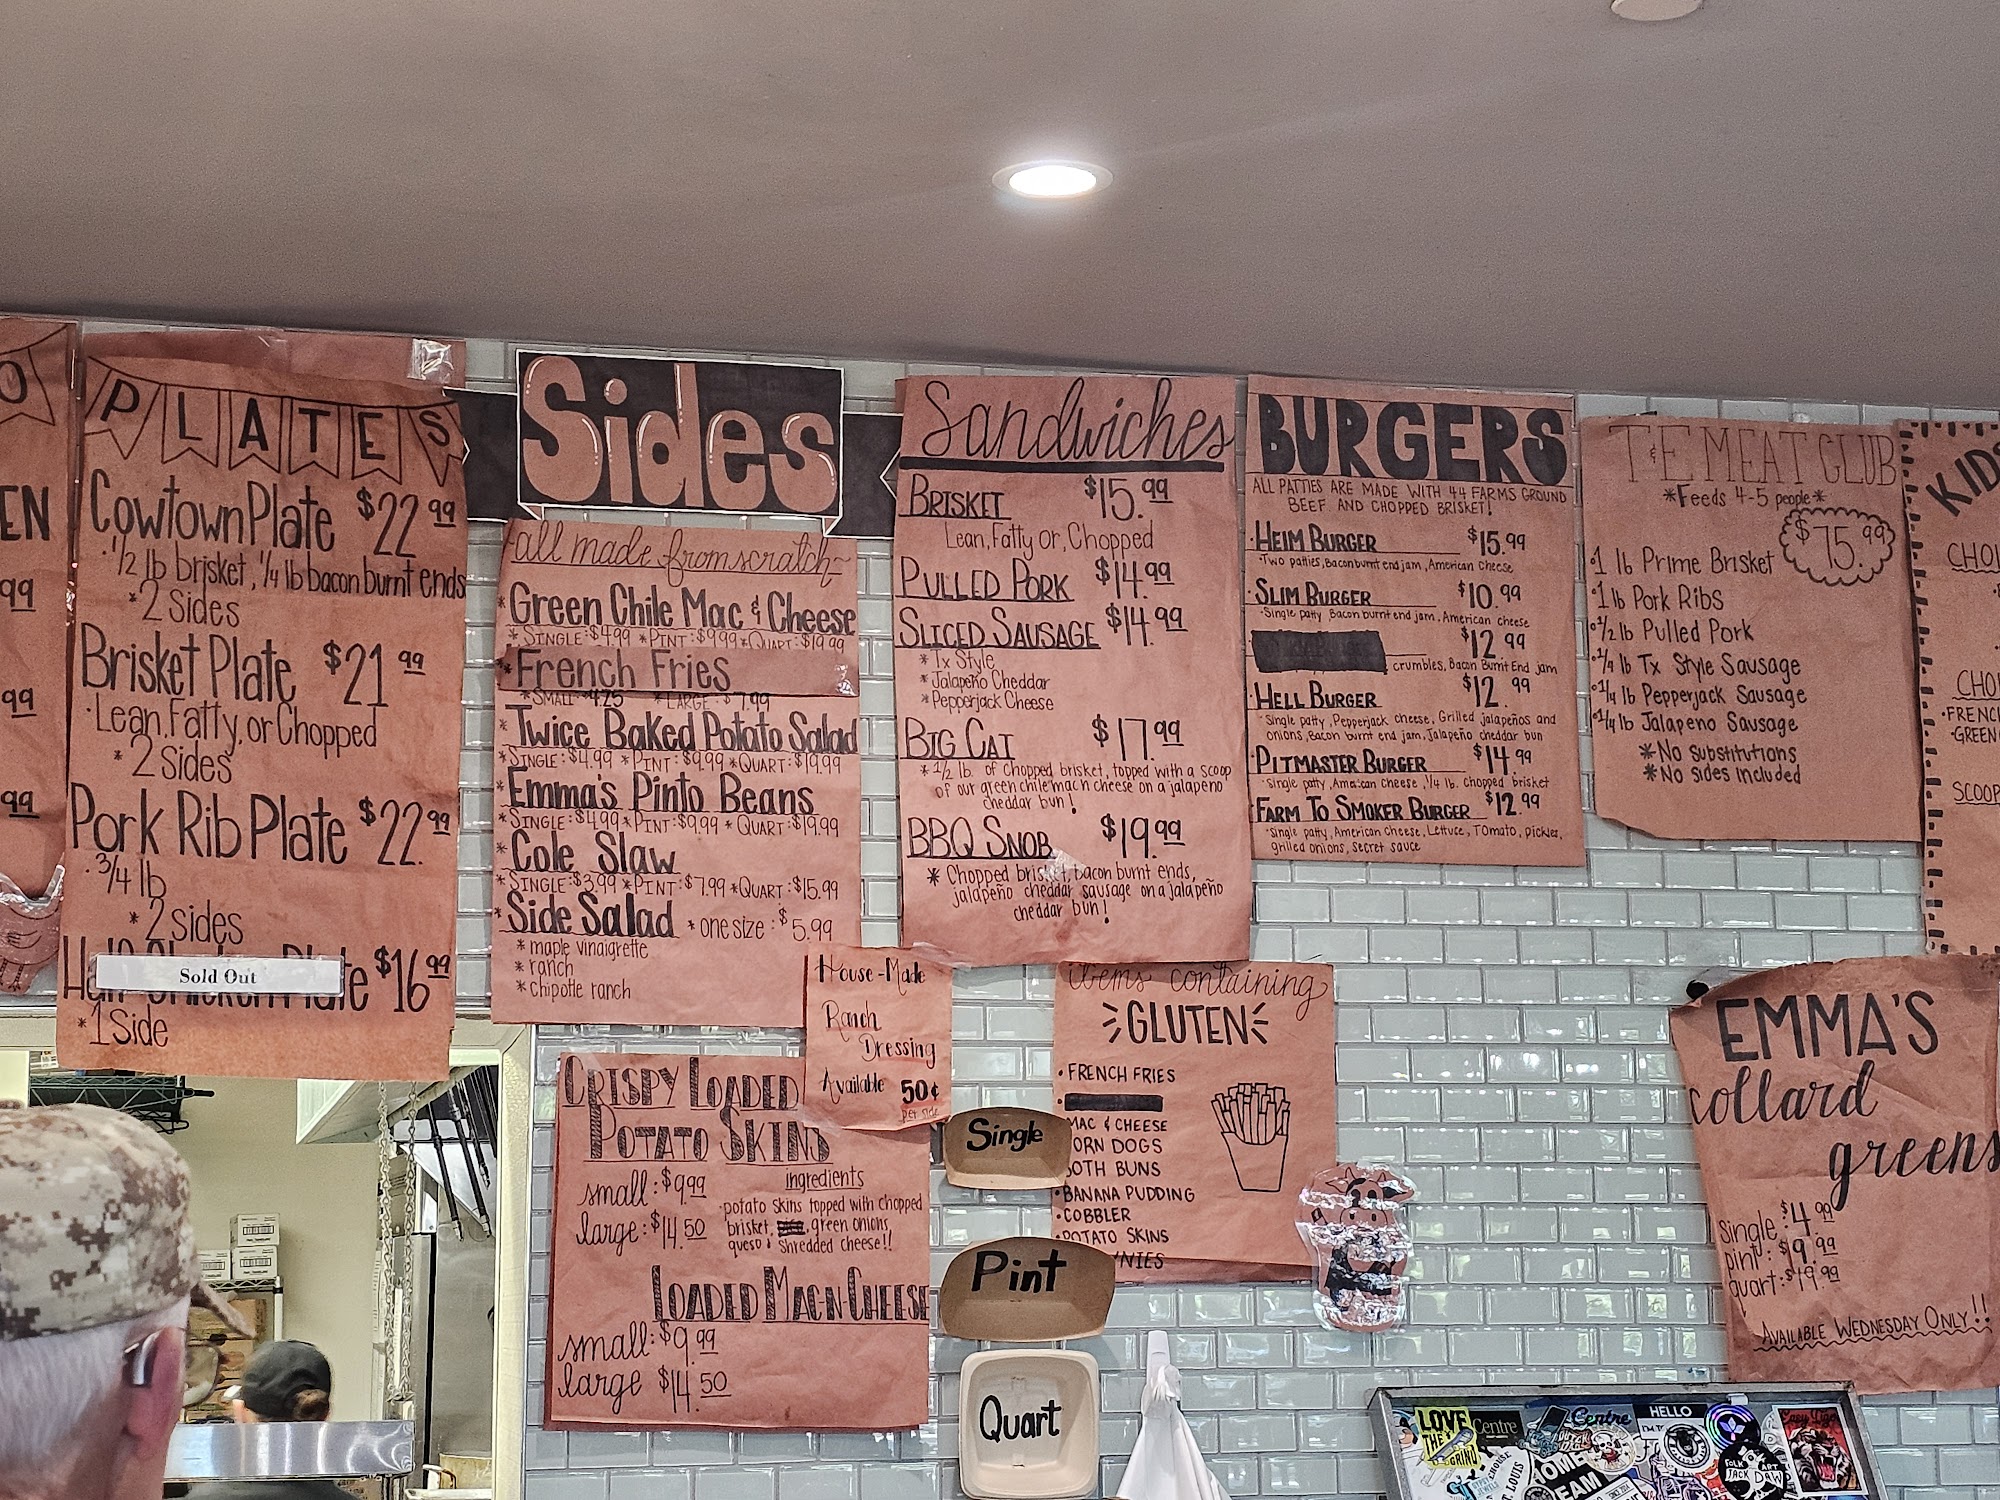 O
EN
99
99
99
PLATES
Cowtown Plate $22.99
·1/2 lb brisket, 1/4 lb bacon burnt ends
*2 Sides
Brisket Plate $21.99
·Lean, Fatty, or Chopped
*2 Sides
Pork Rib Plate $22.99
·3/4 lb
*2 sides
Plate $16.99
Sold Out
*1 Side
Sides
all made from scratch
*Green Chile Mac & Cheese
*SINGLE:$4.99 *PINT:$9.99 *QUART:$19.99
*French Fries
*SMALL $4.25 *LARGE:$7.99
*Twice Baked Potato Salad
*SINGLE:$4.99 *PINT:$9.99 *QUART:$19.99
*Emma's Pinto Beans
*SINGLE:$4.99 *PINT:$9.99 *QUART:$19.99
*Cole Slaw
*SINGLE:$3.99 *PINT:$7.99 *QUART:$15.99
*Side Salad *one size:$5.99
*maple vinaigrette
*ranch
*chipotle ranch
House-Made
Ranch
Dressing
Available 50¢
per side
CRISPY LOADED
POTATO SKINS
small:$9.99
large:$14.50
ingredients
potato skins topped with chopped
brisket, green onions,
queso & shredded cheese!!
LOADED MAC-N-CHEESE
small:$9.99
large $14.50
Sandwiches
BRISKET $15.99
Lean, Fatty or, Chopped
PULLED PORK $14.99
SLICED SAUSAGE $14.99
*Tx Style
*Jalapeño Cheddar
*Pepperjack Cheese
BIG CAT $17.99
*1/2 lb. of chopped brisket, topped with a scoop
of our green chile mac n cheese on a jalapeño
cheddar bun!
BBQ SNOB $19.99
*Chopped brisket, bacon burnt ends,
jalapeño cheddar sausage on a jalapeño
cheddar bun!
items containing
GLUTEN
·FRENCH FRIES
MAC & CHEESE
ORN DOGS
OTH BUNS
·BANANA PUDDING
·COBBLER
·POTATO SKINS
NIES
Single
Pint
Quart
BURGERS
ALL PATTIES ARE MADE WITH 44 FARMS GROUND
BEEF AND CHOPPED BRISKET!
·HEIM BURGER $15.99
·Two patties, Bacon burnt end jam, American Cheese
·SLIM BURGER $10.99
·Single patty, Bacon burnt end jam, American cheese
$12.99
crumbles, Bacon Burnt End jam
·HELL BURGER $12.99
·Single patty, Pepperjack cheese, Grilled jalapeños and
onions, Bacon burnt end jam, Jalapeño cheddar bun
·PITMASTER BURGER $14.99
·Single patty, American Cheese, 1/4 lb. chopped brisket
·FARM TO SMOKER BURGER $12.99
·Single patty, American Cheese, Lettuce, Tomato, pickles,
grilled onions, secret sauce
T&E MEAT CLUB
*Feeds 4-5 people*
$75.99
·1 lb Prime Brisket
·1 lb Pork Ribs
·1/2 lb Pulled Pork
·1/4 lb Tx Style Sausage
·1/4 lb Pepperjack Sausage
·1/4 lb Jalapeno Sausage
*No substitutions
*No sides included
KIDS
CHOI
CHO
·FRENC
·GREEN
SCOOP
EMMA'S
collard
greens
single:$4.99
pint:$9.99
quart:$19.99
AVAILABLE WEDNESDAY ONLY!!
LOVE
THE
GRIND
Centre
Centre
HELLO
FOLK ART
JACK DAW
HOME
TEAM
ST. LOUIS